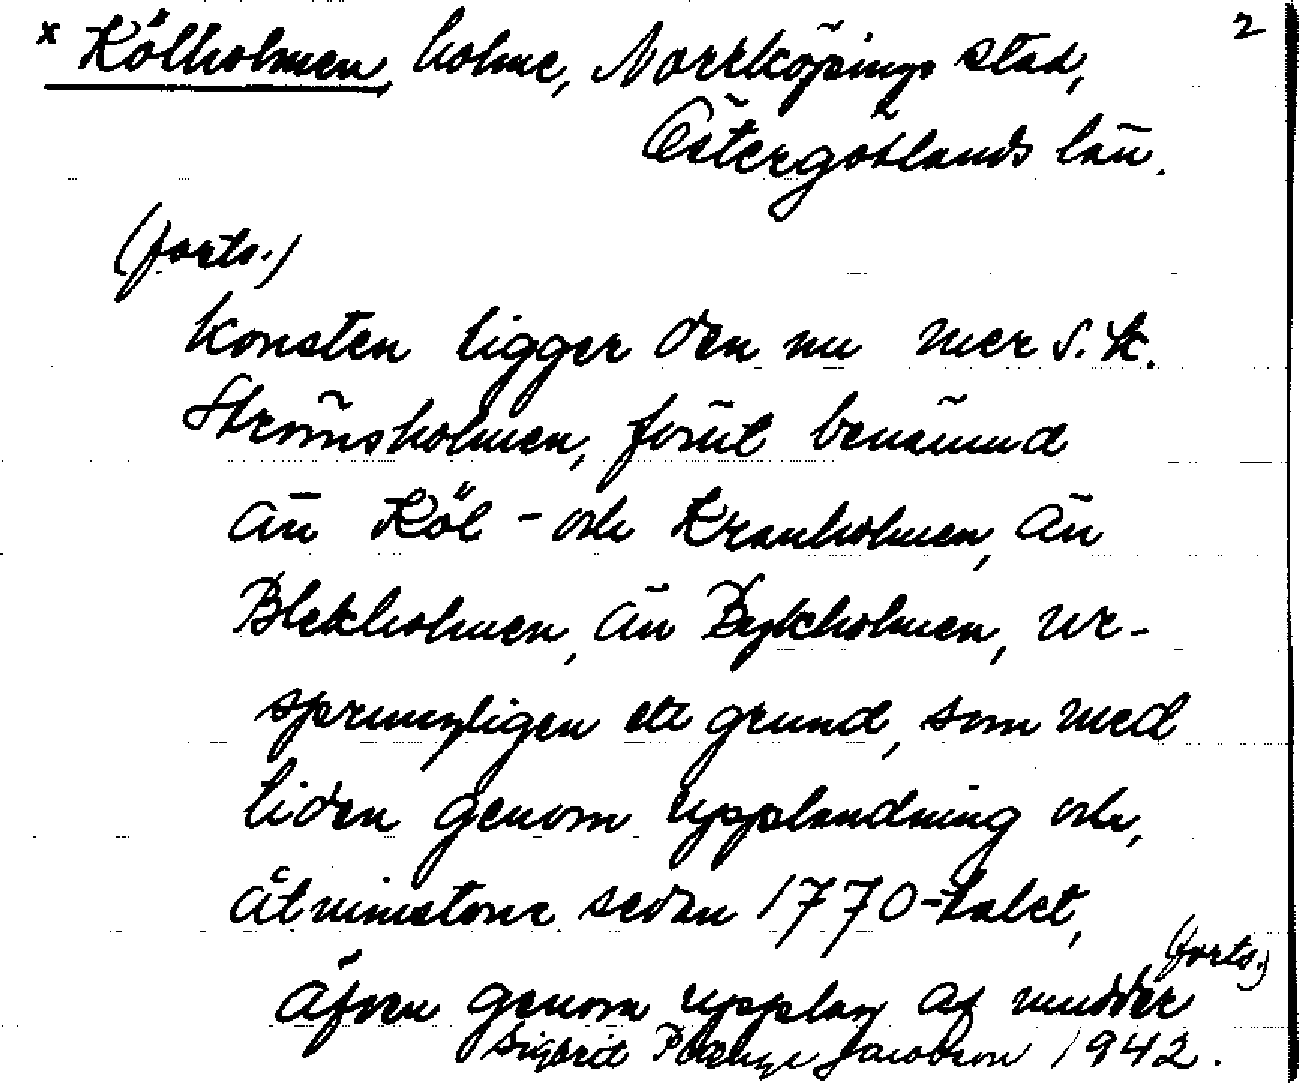 x Kölholmen, holme, Norrköpings stad, 2
Östergötlands län.
(forts.)
konsten ligger den nu mer s.k.
Strömsholmen, förut benämnd
än Köl- och Kranholmen, än
Blekholmen, än Dykholmen, ur-
sprungligen ett grund, som med
tiden genom upplandning och,
åtminstone sedan 1770-talet,
(forts.)
äfven genom upplag af mudder
Sigbrit Plænge Jacobson 1942.